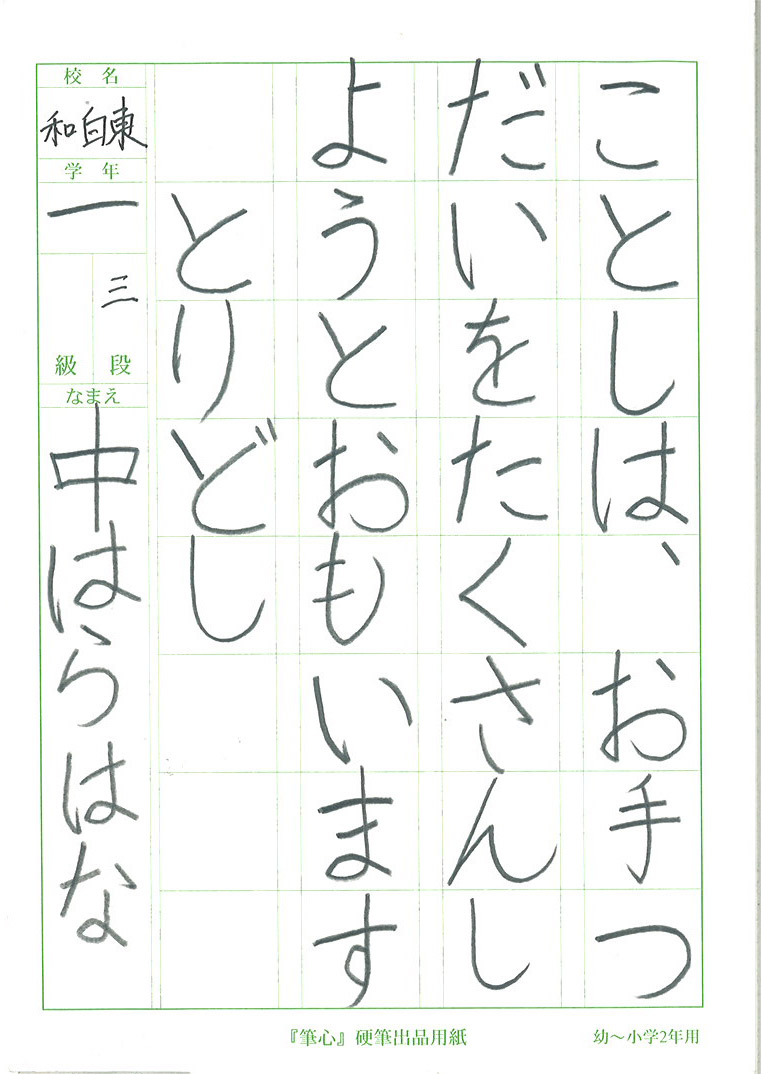 ことしは、お手つ
だいをたくさんし
ようとおもいます
とりどし
校名
和白東
学年
一
三
級 段
なまえ
中はらはな
『筆心』硬筆出品用紙
幼～小学2年用